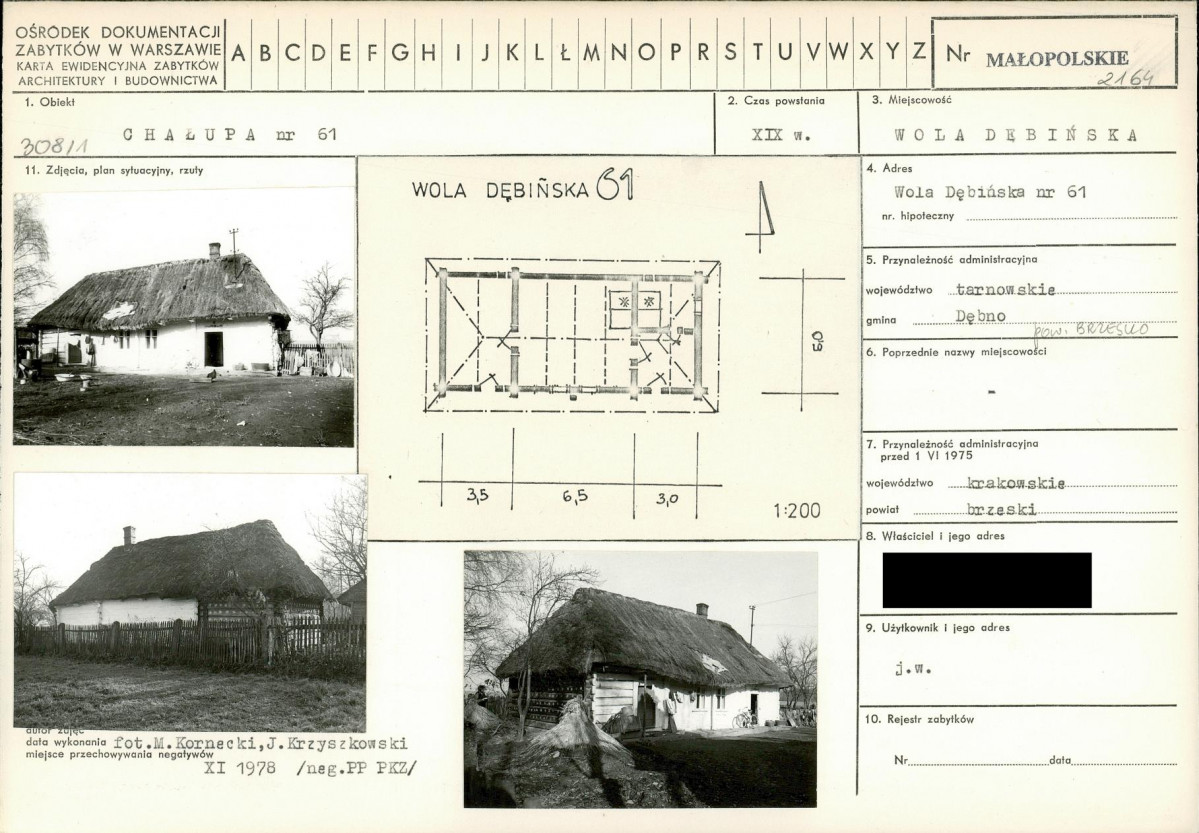 OŚRODEK DOKUMENTACJI
ZABYTKÓW W WARSZAWIE
KARTA EWIDENCYJNA ZABYTKÓW
ARCHITEKTURY I BUDOWNICTWA
A B C D E F G H I J K L Ł M N O P R S T U V W X Y Z
Nr MAŁOPOLSKIE
2164
1. Obiekt
CHAŁUPA nr 61
308/1
2. Czas powstania
XIX w.
3. Miejscowość
WOLA DĘBIŃSKA
11. Zdjęcia, plan sytuacyjny, rzuty
WOLA DĘBIŃSKA 61
5,0
3,5 6,5 3,0
1:200
4. Adres
Wola Dębińska nr 61
nr. hipoteczny
5. Przynależność administracyjna
województwo tarnowskie
gmina Dębno
pow. BRZESKO
6. Poprzednie nazwy miejscowości
-
7. Przynależność administracyjna
przed 1 VI 1975
województwo krakowskie
powiat brzeski
8. Właściciel i jego adres
9. Użytkownik i jego adres
j.w.
10. Rejestr zabytków
Nr data
autor zdjęć
data wykonania fot.M.Kornecki,J.Krzyszkowski
miejsce przechowywania negatywów
XI 1978 /neg.PP PKZ/